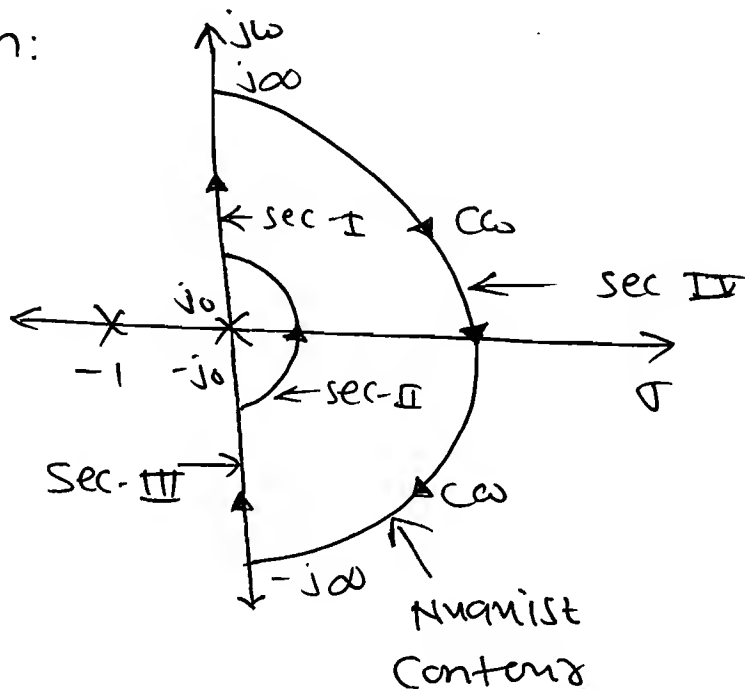 n:
jω
j∞
sec-I
Cω
sec IV
j0
-1 -j0
σ
sec-II
Sec. III
Cω
-j∞
Nuquist
Contour